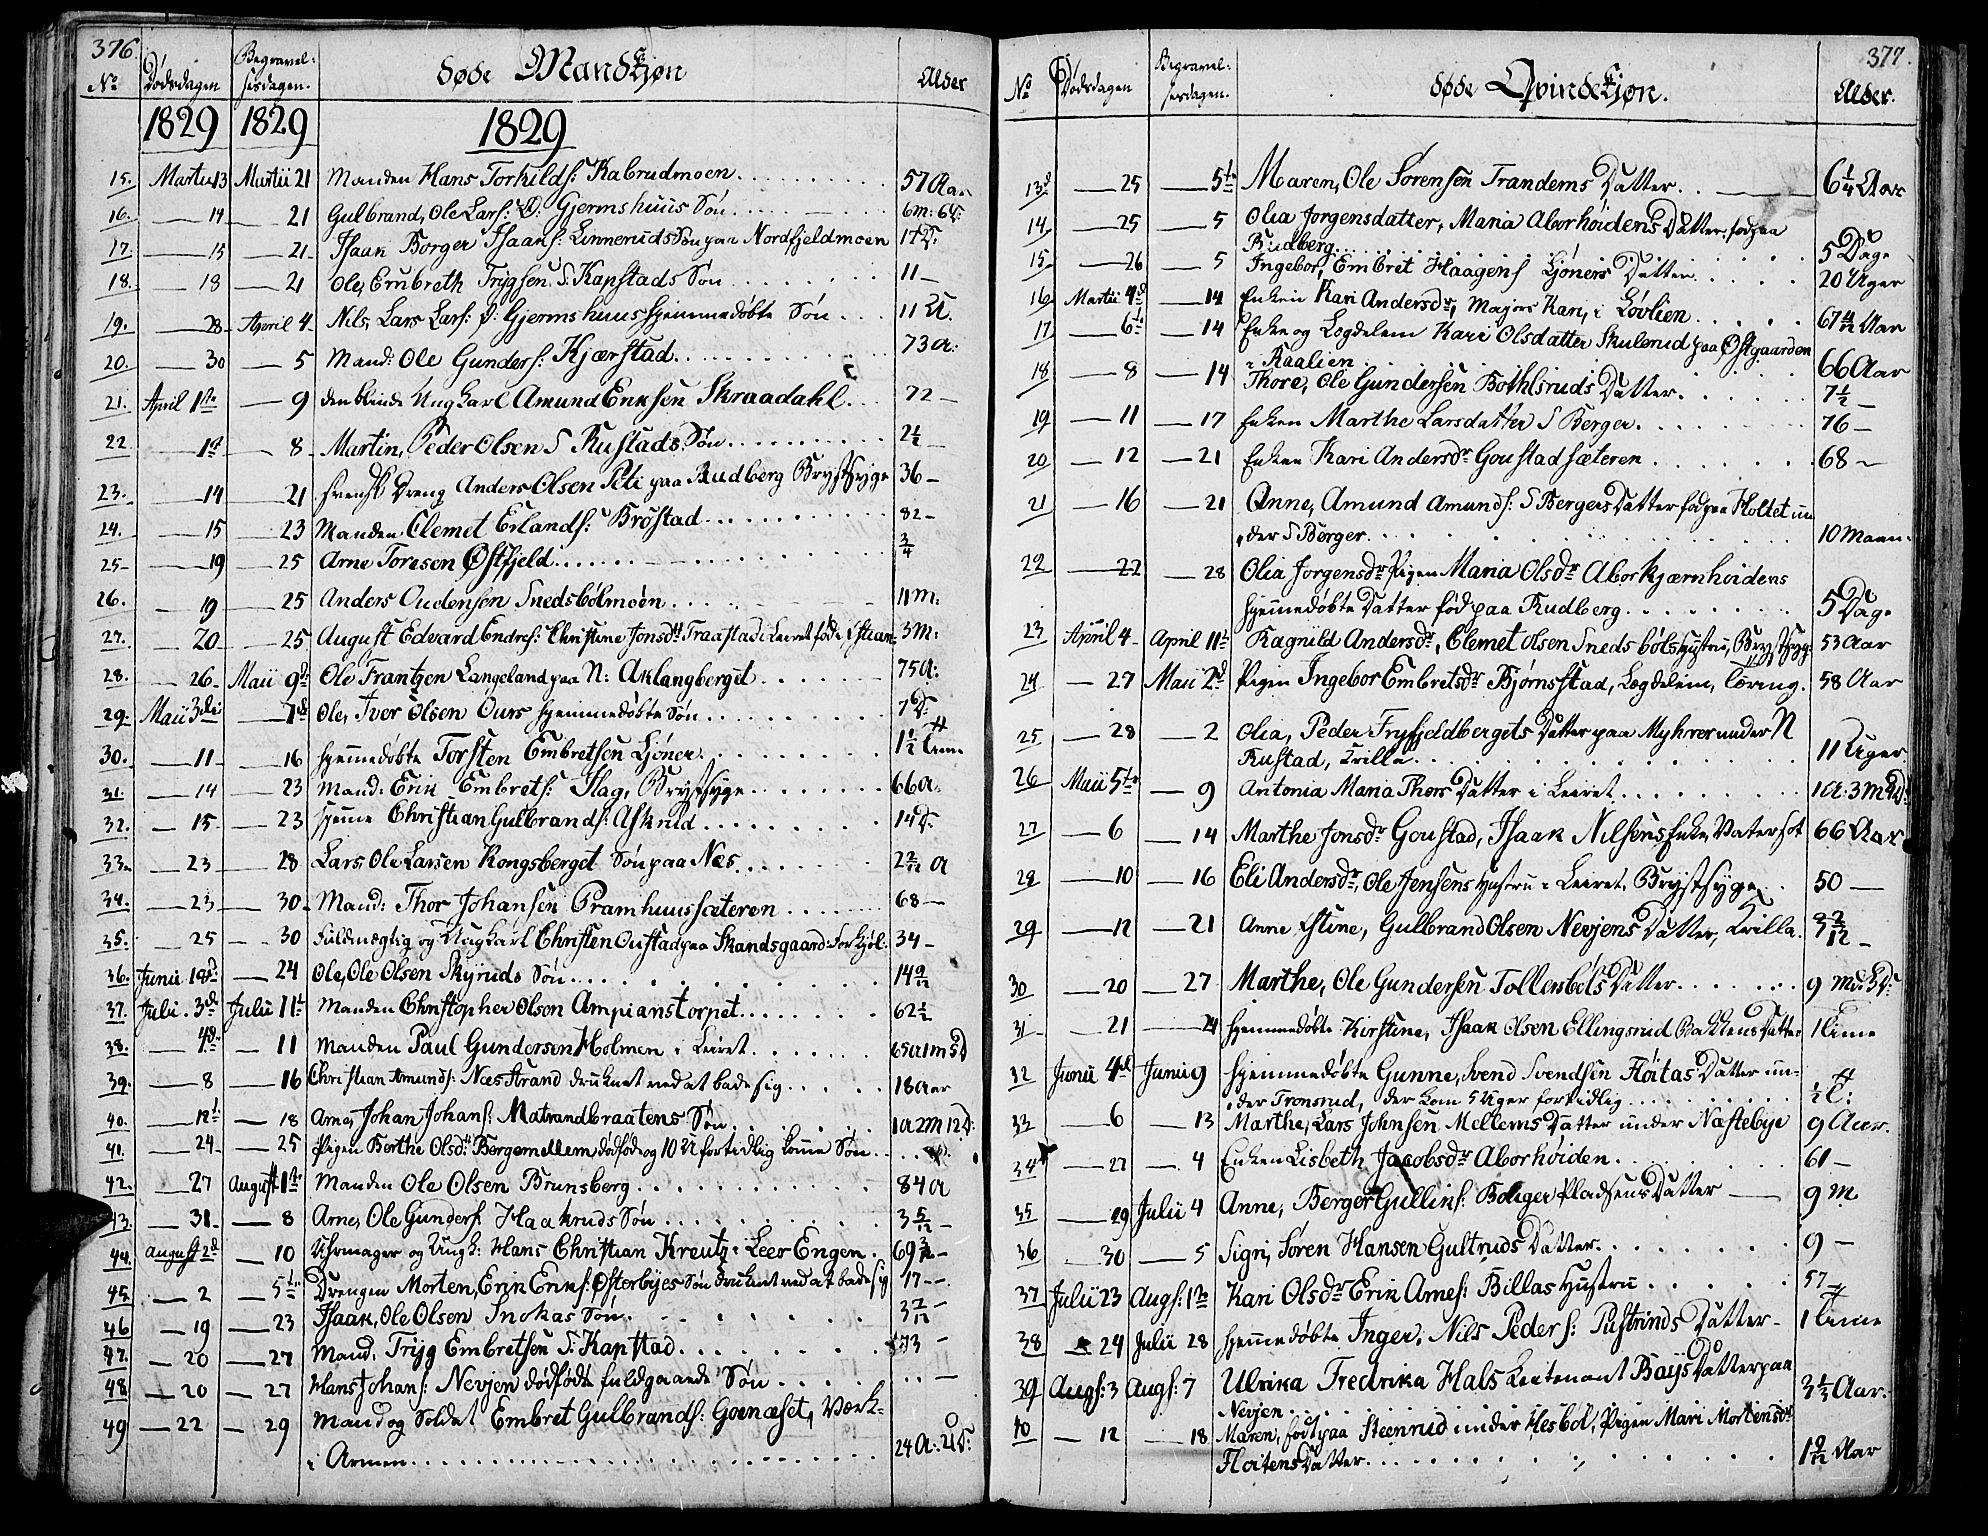 376.
No Dødsdagen Begravel:sesdagen. døde Mandkjøn Alder
1829 1829 1829
15. Martii 13 Martii 21 Manden Hans Torkilds: Kabrudmoen 57 Aar
16. — 14 — 21 Gulbrand, Ole Lars: Gjermshuus Søn 6m: 6D:
17. — 15 — 21 Isaak Borger Isaaks: Linnerudssøn paa Nordfjeldmoen 17D:
18. — 18 — 21 Ole, Embreth Trygsen S. Kapstads Søn 11 —
19. — 28 April 4 Nils, Lars Lars: Gjermshuus hjemmedøbte Søn 11 U.
20. — 30 — 5 Mand: Ole Gunders: Kjærstad 73 a:
21. April 1ste — 9 den blinde Ungkarl Amund Eriksen Skraadahl 72 —
22 — 1st — 8 Martin, Peder Olsen S Rustads Søn 2½ —
23. — 14 — 21 svensk Dreng Anders Olsen Peti paa Rudberg Brystsyge 36 —
24. — 15 — 23 Manden Clemet Erlands: Brøstad 82 —
25 — 19 — 25 Arne Toresen Østfjeld ¾
26. — 19 — 25 Anders Oudensen Snedsbølmoen 11m:
27. — 20 — 25 August Edvard Endres: Christine Jonsdtr Traastad i Leiret 3m:
28. — 26 Maii 9de Ole Frantzen Langeland paa N: Aklangberget 75 a:
29. Maii 3die — 7d Ole, Iver Olsen Ours hjemmedøbte Søn 7 D:
30. — 11 — 16 hjemmedøbte Torsten Embretsen Ljøner 1½ Time
31. — 14 — 23 Mand: Erik Embrets: Flag, Brystsyge 66 a:
32. — 15 — 23 hjemme Christian Gulbrands: Askrud 14 D.
33. — 23 — 28 Lars, Ole Larsen Kongsberget Søn paa Næs 2 2/12 a
34. — 23 — 30 Mand: Thor Johansen Pramhuussæteren 68 —
35. — 25 — 30 Fuldmægtig og Ungkarl Christen Oustad paa Skandsgaard 34 —
36. Junii 18d — 24 Ole, Ole Olsen Skyruds Søn 14 9/12
37. Julii. 3de Julii 11t Manden Christopher Olsen Ampianstorpet 62 ½
38. — 4de — 11 Manden Paul Gundersen Holmen i Leiret 65 a 1m 5D
39. — 8 — 16 Christian Amunds: Næsstrand druknet ved at bade sig 18 aar
40. — 12t — 18 Arne, Johan Johans: Matrandbraatens Søn 1a 2m 12D:
41. — 24 — 25 Pigen Berthe Olsdtr Bergemellem dødføde og 10 U for tidlig komne Søn
42. — 27 August 1ste Manden Ole Olsen Brunsberg 84 a
43. — 31 — 8 Arne, Ole Gunders: Haakruds Søn 3 5/12 —
44. August 2d — 10 Uhrmager og Ungk: Hans Christian Kreutz i Leer Engen 69 —
45. — 2 — 5t Drengen Morten, Erik Eriks: Østerbyes Søn druknet ved at bade sig 17 —
46 — 19 — 23 Isaak, Ole Olsen Snokas Søn 3 7/12 —
47. — 20 — 27 Mand. Tryg Embretsen S: Kapstad 73 —
48 — 20 — 27 Hans Johans: Nevjen dødfødte fuldgaaende Søn —
49 — 22 — 29 Mand og Soldat Embret Gulbrands: Goenæset, Værk
i Armen 24 A:
377.
No Dødsdagen Begravel:sesdagen. døde Qvindekjøn. Alder.
13d — 25 — 5te Maren, Ole Sørensen Trandems Datter 6¼ Aar
14 — 25 — 5 Olia Jorgensdatter, Maria Aborhøidens Datter, fød paa
Rudberg 5 Dage
15. — 26 — 5 Ingebor, Embret Haagens Ljøners Datter 20 Uger
16 Martii 4d — 14 Enken Kari Andersdr, Majors Kari, i Løvlien 67 Aar
17 — 6t — 14 Enke og Lægdelem Kari Olsdatter Skulerud paa Østgaarden
i Raalien 66 Aar
18 — 8 — 14 Thore, Ole Gundersen Bothlsruds Datter 7½ —
19 — 11 — 17 Enken Marthe Larsdatter S Berger 76 —
20 — 12 — 21 Enken Kari Andersdr Goustadsæteren 68 —
21 — 16 — 21 Anne, Amund Amunds: S Bergers Datter fød paa Holtet un
der S Berger 10 Maan.
22 — 22 — 28 Olia Jorgensdr Pigen Maria Olsdr Aborkjærnhøidens
hjemmedøbte Datter fød paa Rudberg 5 Dage
23 April 4 April 11t Ragnild Andersdr, Clemet Olsen Snedsbøls Hustru, Brystsyge 53 Aar
24 — 27 Maii 2d Pigen Ingebor Embretsdr Bjørnsstad, Lægdelem, Tæring 58 Aar
25 — 28 — 2 Olia, Peder Fryfjeldbergets Datter paa Myhrer under N
Rustad, Krilla 11 Uger
26 Maii 5te — 9 Antonia Maria Thors Datter i Leiret 1 a: 3 m
27 — 6 — 14 Marthe Jonsdr Goustad, Isaak Nilsens Enke, Vatersot 66 Aar
28 — 10 — 16 Eli Andersdr, Ole Jensens Hustru i Leiret, Brystsyge 50 —
29 — 12 — 21 Anne Stine, Gulbrand Olsen Nevjens Datter, Krilla 3 2/12 —
30 — 20 — 27 Marthe, Ole Gundersen Tollersbøls Datter 9 M: 3D:
31 — 21 — 24 hjemmedøbte Kirstine, Isaak Olsen Ellingsrud Bakkens Datter 1 Time
32 Junii 4d Junii 9 hjemmedøbte Gunne, Svend Svendsen Fløitas Datter un-
der Tronsrud, der kom 5 Uger for tidlig ½ T:
33 — 6 — 13 Marthe, Lars Johnsen Mellems Datter under Næstebye 9 Aar.
34 — 27 — 4 Enken Lisbeth Jacobsdr Aborhøiden 61 —
35 — 29 Julii 4 Anne, Berger Gullins: Bølger Pladsens Datter 9 M
36 — 30 — 5 Sigri, Søren Hansen Gultruds Datter 9 —
37 Julii 23 Augs: 1te Kari Olsdr Erik Arnes: Billas Hustru 57 —
38 — 24 Julii 28 hjemmedøbte Inger, Nils Peders: Pustrinds Datter 1 Time
39 Augs: 3 Augs: 7 Ulrika Fredrika Hals Lieutenant Boijs Datter paa
Nevjen 3⅓ Aar.
40 — 12 — 18 Maren, født paa Steenrud under Hesbøl, Pigen Mari Mortensdr
Fløitens Datter 1 9/12 Aar